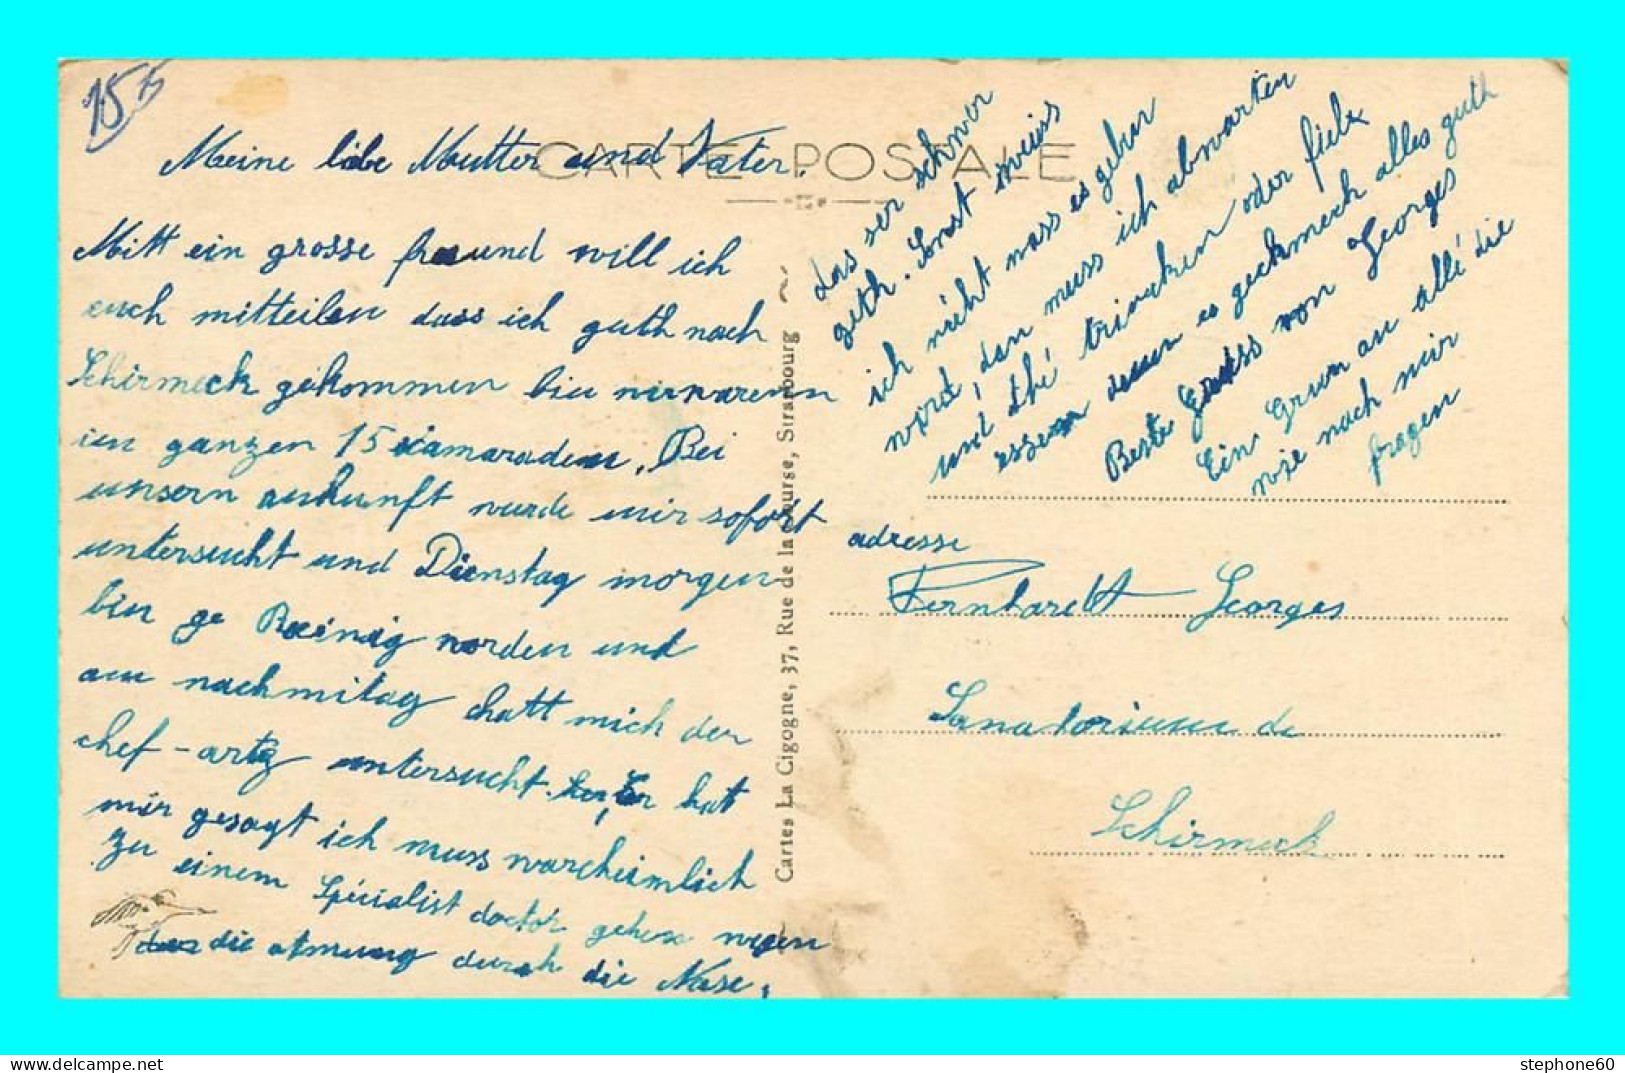 15
CARTE POSTALE
Meine liebe Mutter und Vater.
Mitt ein grosse freund will ich
euch mitteilen dass ich guth nach
Schirmeck gekommen bin wir waren
im ganzen 15 camaraden, Bei
unsern ankunft wurde wir sofort
untersucht und Dienstag morgen
bin ge worden und
am nachmitag chatt mich der
chef-artz untersucht. Er hat
mir gesagt ich muss warcheimlich
zu einem Spécialist doctor gehen wegen
die atmung durch die Nase,
das ser schwer
geth. Sonst weiss
ich nicht was es geben
word, dan muss ich abwarten
und thé trincken oder
essen denn es geckmeck alles guth
Beste Gruss von Georges
Ein Gruss an allé die
wie nach mir
fragen
Cartes La Cigogne, 37, Rue de la Bourse, Strasbourg
adresse
Bernhardt Georges
Sanatorium de
Schirmeck
stephone60